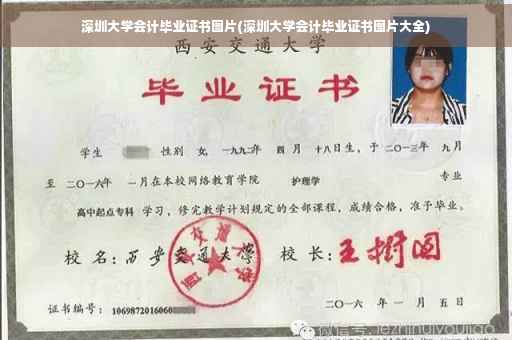 深圳大学会计毕业证书图片(深圳大学会计毕业证书图片大全)
西安交通大学
毕业证书
学生 性别 女，一九九二年 四 月 十八日生，于 二〇一三年 九月
至 二〇一六年 一月在本校网络教育学院 护理学 专业
高中起点专科 学习，修完教学计划规定的全部课程，成绩合格，准予毕业。
校 名：西安交通大学 校 长：王树国
西安交通大学
证书编号： 1069872016060
二〇一六 年 一 月 五 日
微信号: jiezhihuiyoujiao